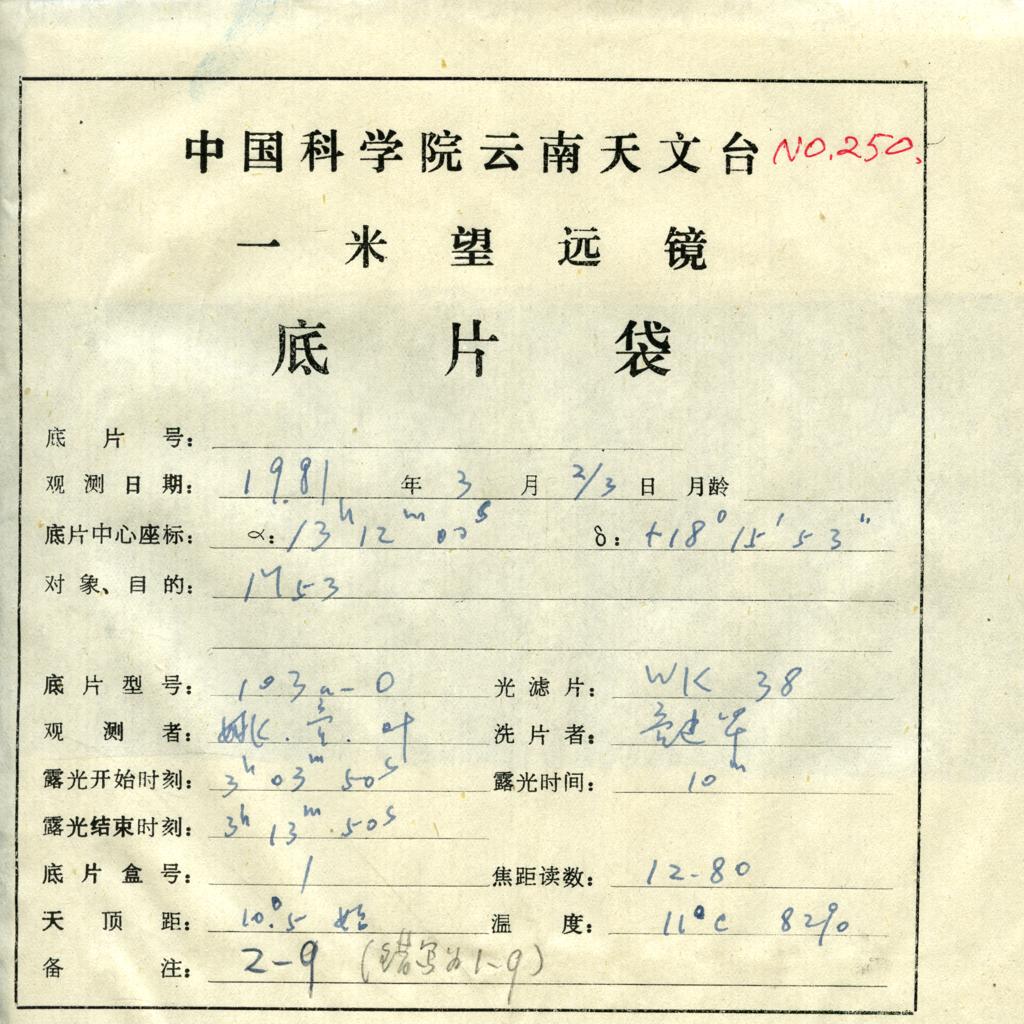 中国科学院云南天文台 NO.250.
一米望远镜
底片袋
底片号：
观测日期： 1981 年 3 月 2/3 日 月龄
底片中心座标： α：13h 12m 00s δ：+18° 15′ 53″
对象、目的： M53
底片型号： 103a-O 光滤片： WK 38
观测者： 姚. . 叶 洗片者： 建军
露光开始时刻： 3h 03m 50s 露光时间： 10m
露光结束时刻： 3h 13m 50s
底片盒号： 1 焦距读数： 12.80
天顶距： 10°.5 始 温度： 11°C 82%
备注： 2-9 (错写为1-9)